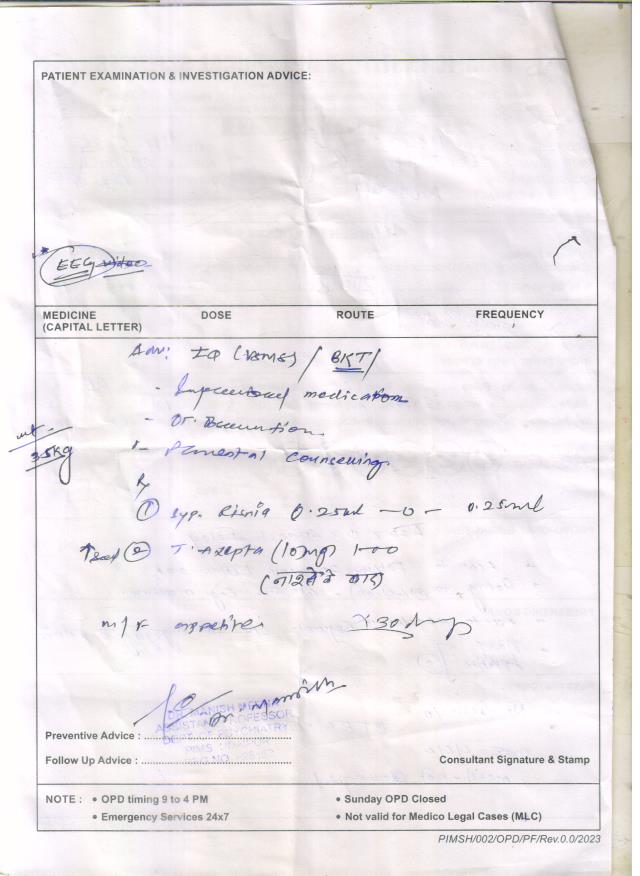 PATIENT EXAMINATION & INVESTIGATION ADVICE:
EEG video
MEDICINE DOSE ROUTE FREQUENCY
(CAPITAL LETTER)
Adv: IQ / BKT /
- Supervised medication
- Parental counselling
wt -
35kg
Rx
① syp. Risnia 0.25ml -0- 0.25ml
② T. Axepta (10mg) 1-0-0
(नाश्ते के बाद)
m/f appetite x 30 days
Dr. Manish
ASSISTANT PROFESSOR
DEPT. OF PSYCHIATRY
Preventive Advice :
Follow Up Advice : Consultant Signature & Stamp
NOTE : • OPD timing 9 to 4 PM • Sunday OPD Closed
• Emergency Services 24x7 • Not valid for Medico Legal Cases (MLC)
PIMSH/002/OPD/PF/Rev.0.0/2023